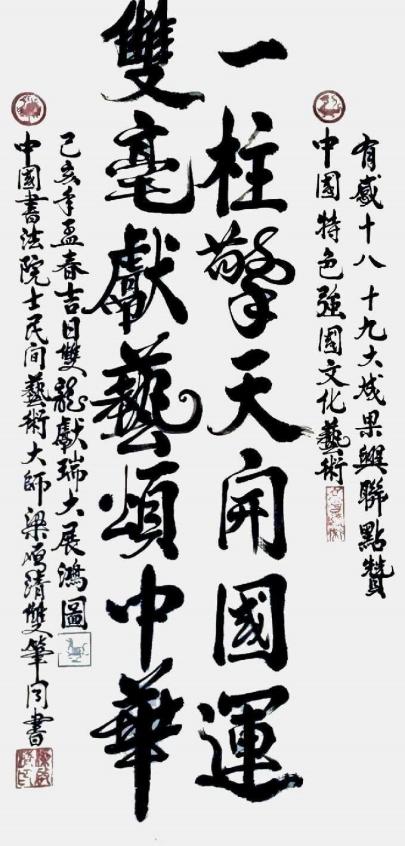 有感十八十九大成果興聯點贊
中國特色強國文化藝術
一柱擎天開國運
雙毫獻藝頌中華
己亥年孟春吉日雙龍獻瑞大展鴻圖
中國書法院士民间藝術大師梁順清雙筆同書